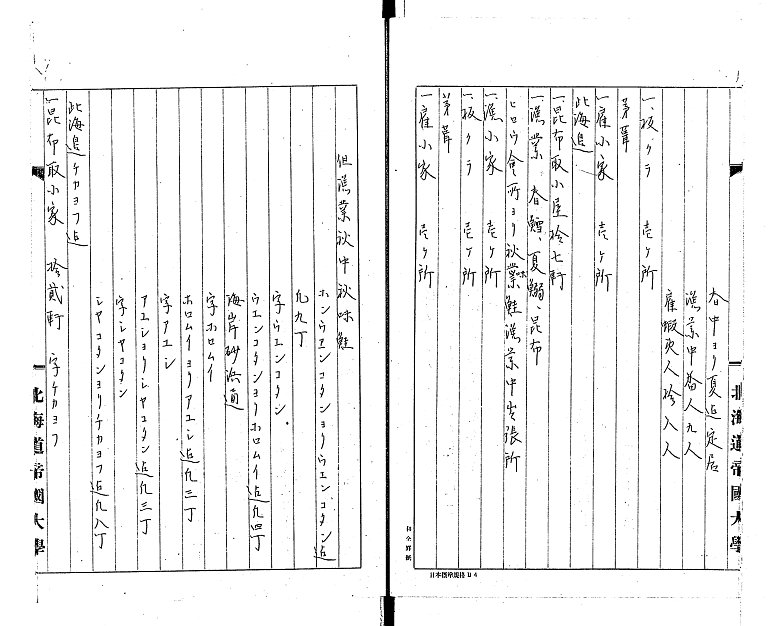 春中ヨリ夏迠定居
漁業中番人九人
雇蝦夷人拾八人
一板クラ 壱ケ所
茅葺
一雇小家 壱ケ所
此海邉
一昆布取小屋拾七軒
一漁業 春鯡、夏鰯、昆布
ヒロウ會所ヨリ秋味鮭漁業中出張所
一漁小家 壱ケ所
一板クラ 壱ケ所
茅葺
一雇小家 壱ケ所
北海道帝國大學
日本標準規格B4
但漁業秋中秋味鮭
ホンウエンコタンヨリウエンコタン迠
凡九丁
字ウエンコタン
ウエンコタンヨリホロムイ迠凡四丁
海岸砂浜道
字ホロムイ
ホロムイヨリアユシ迠凡三丁
字アユシ
アユシヨリシヤコタン迠凡三丁
字シヤコタン
シヤコタンヨリチカヨフ迠凡八丁
此海邉チカヨフ迠
一昆布取小家 拾貳軒 字チカヨフ
北海道帝國大學